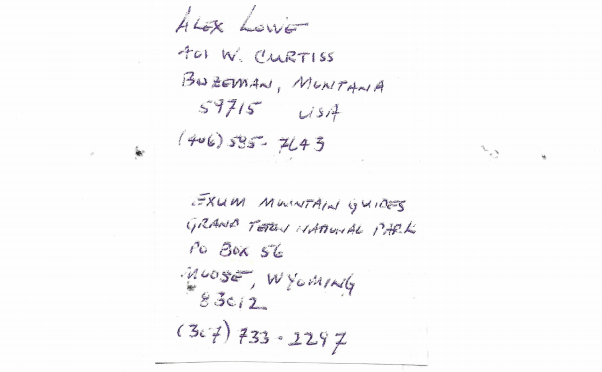 ALEX LOWE
401 W. CURTISS
BOZEMAN, MONTANA
59715 USA
(406) 585-7643
EXUM MOUNTAIN GUIDES
GRAND TETON NATIONAL PARK
PO BOX 56
MOOSE, WYOMING
83012
(307) 733-2297